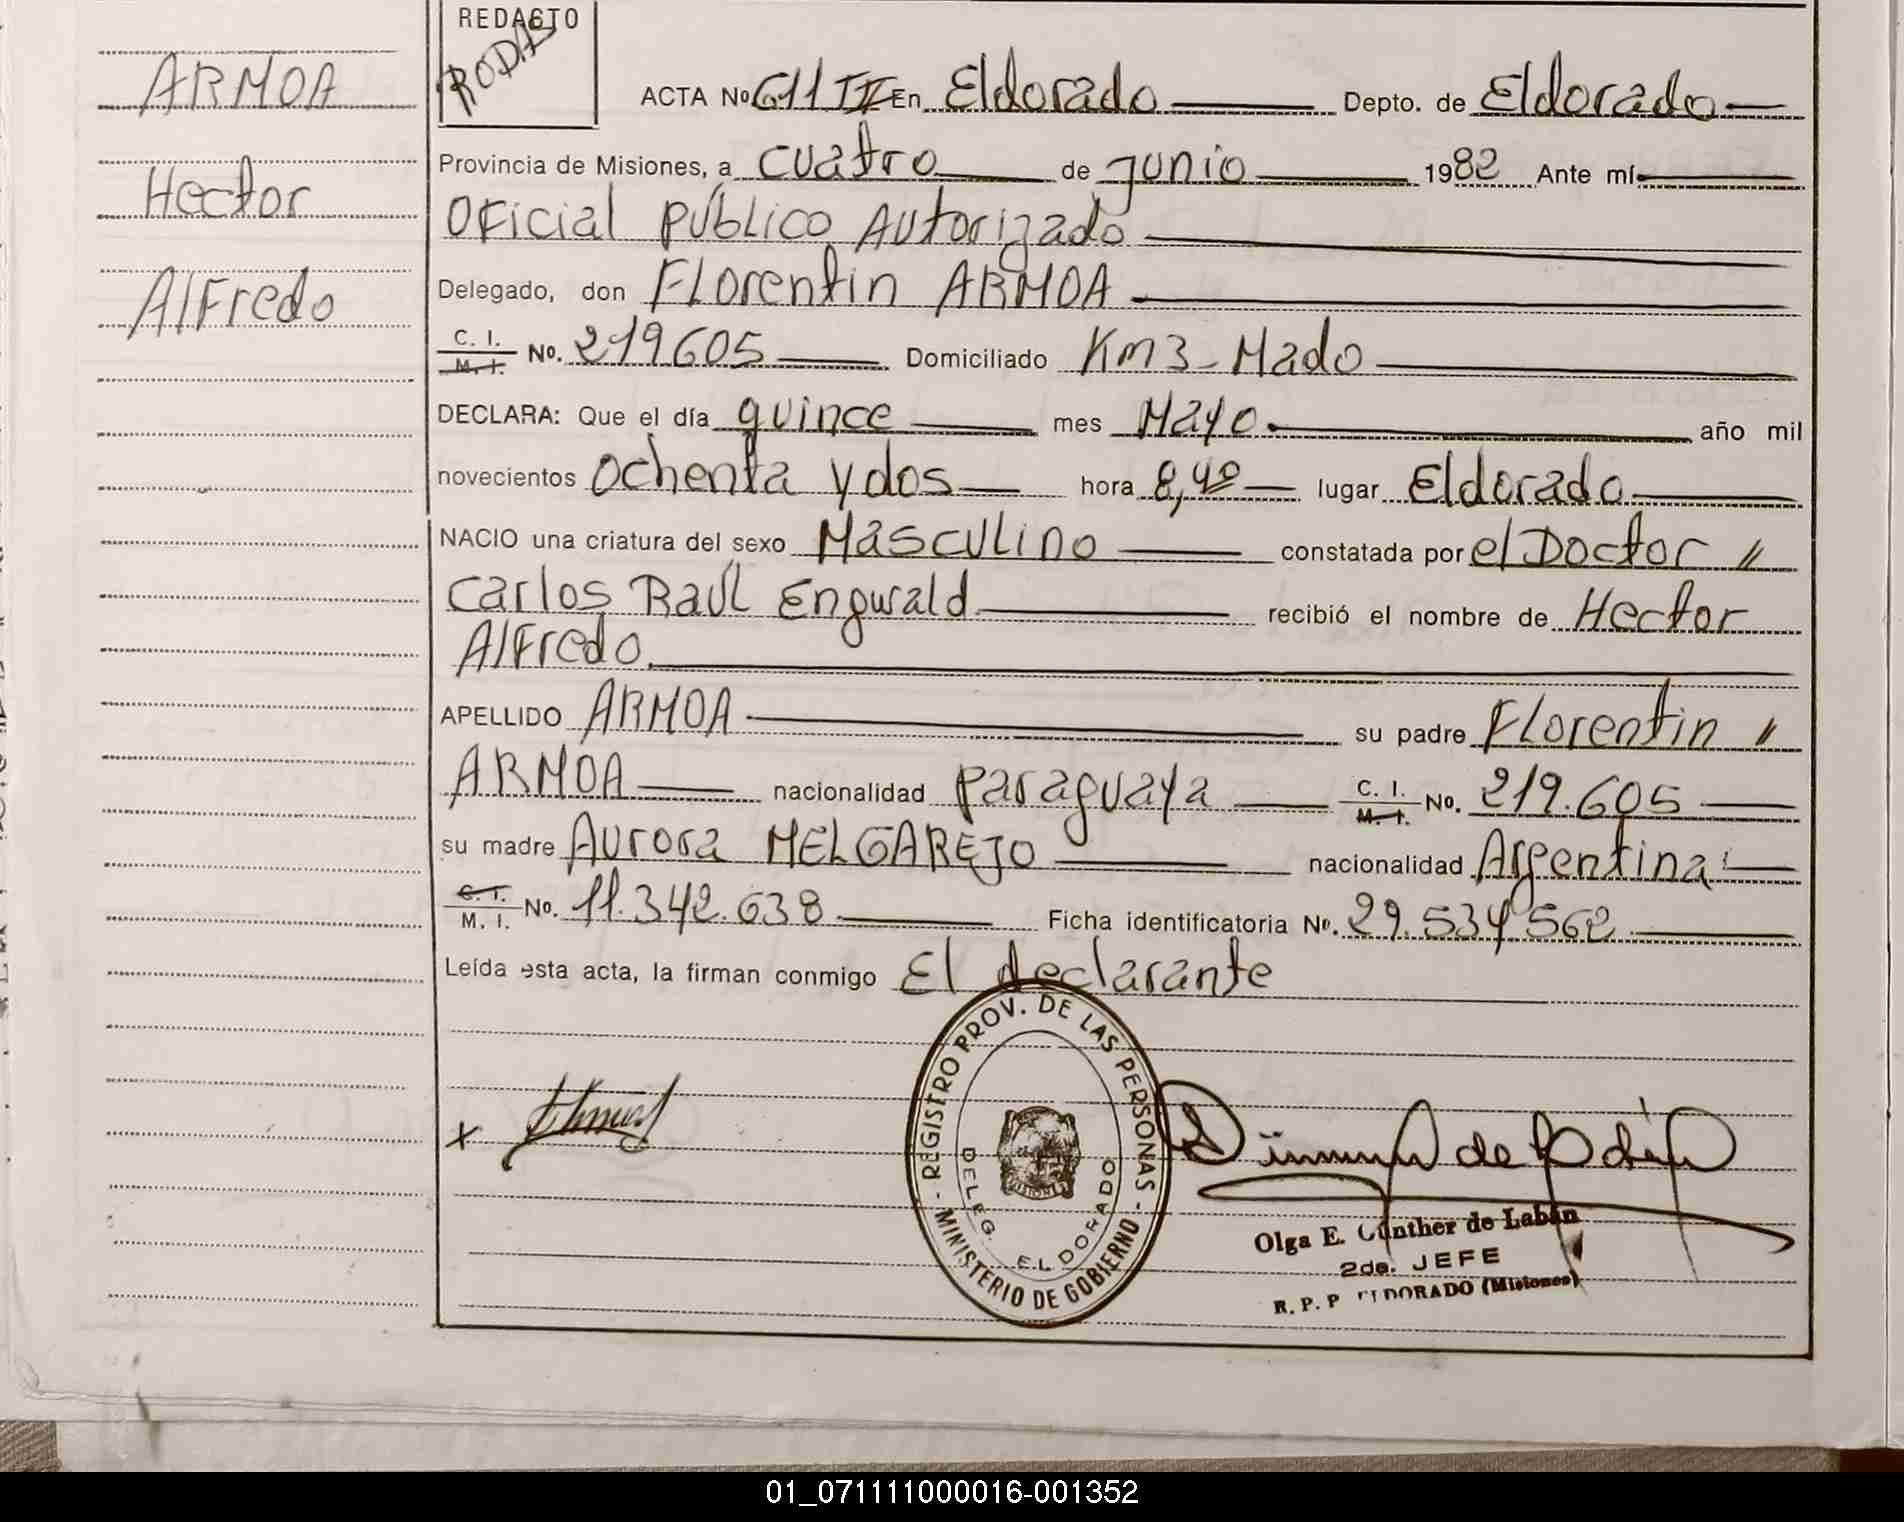 REDACTO
RODAS
ARMOA
Hector
Alfredo
ACTA No 611 II En Eldorado Depto. de Eldorado
Provincia de Misiones, a cuatro de junio 1982 Ante mí
Oficial Público Autorizado
Delegado, don Florentin ARMOA
C. I. M. I. No. 219605 Domiciliado Km3-Mado
DECLARA: Que el día quince mes Mayo año mil
novecientos ochenta y dos hora 8,40 lugar Eldorado
NACIO una criatura del sexo Masculino constatada por el Doctor //
Carlos Raúl Engwald recibió el nombre de Hector
Alfredo.
APELLIDO ARMOA su padre Florentin //
ARMOA nacionalidad paraguaya C. I. M. I. No. 219.605
su madre Aurora MELGAREJO nacionalidad Argentina
C. I. M. I. No. 11.342.638 Ficha identificatoria No. 29.534562
Leída esta acta, la firman conmigo El declarante
- REGISTRO PROV. DE LAS PERSONAS -
MINISTERIO DE GOBIERNO
DELEG. ELDORADO
MISIONES
Olga E. Günther de Labán
2da. JEFE
R. P. P. ELDORADO (Misiones)
01_071111000016-001352